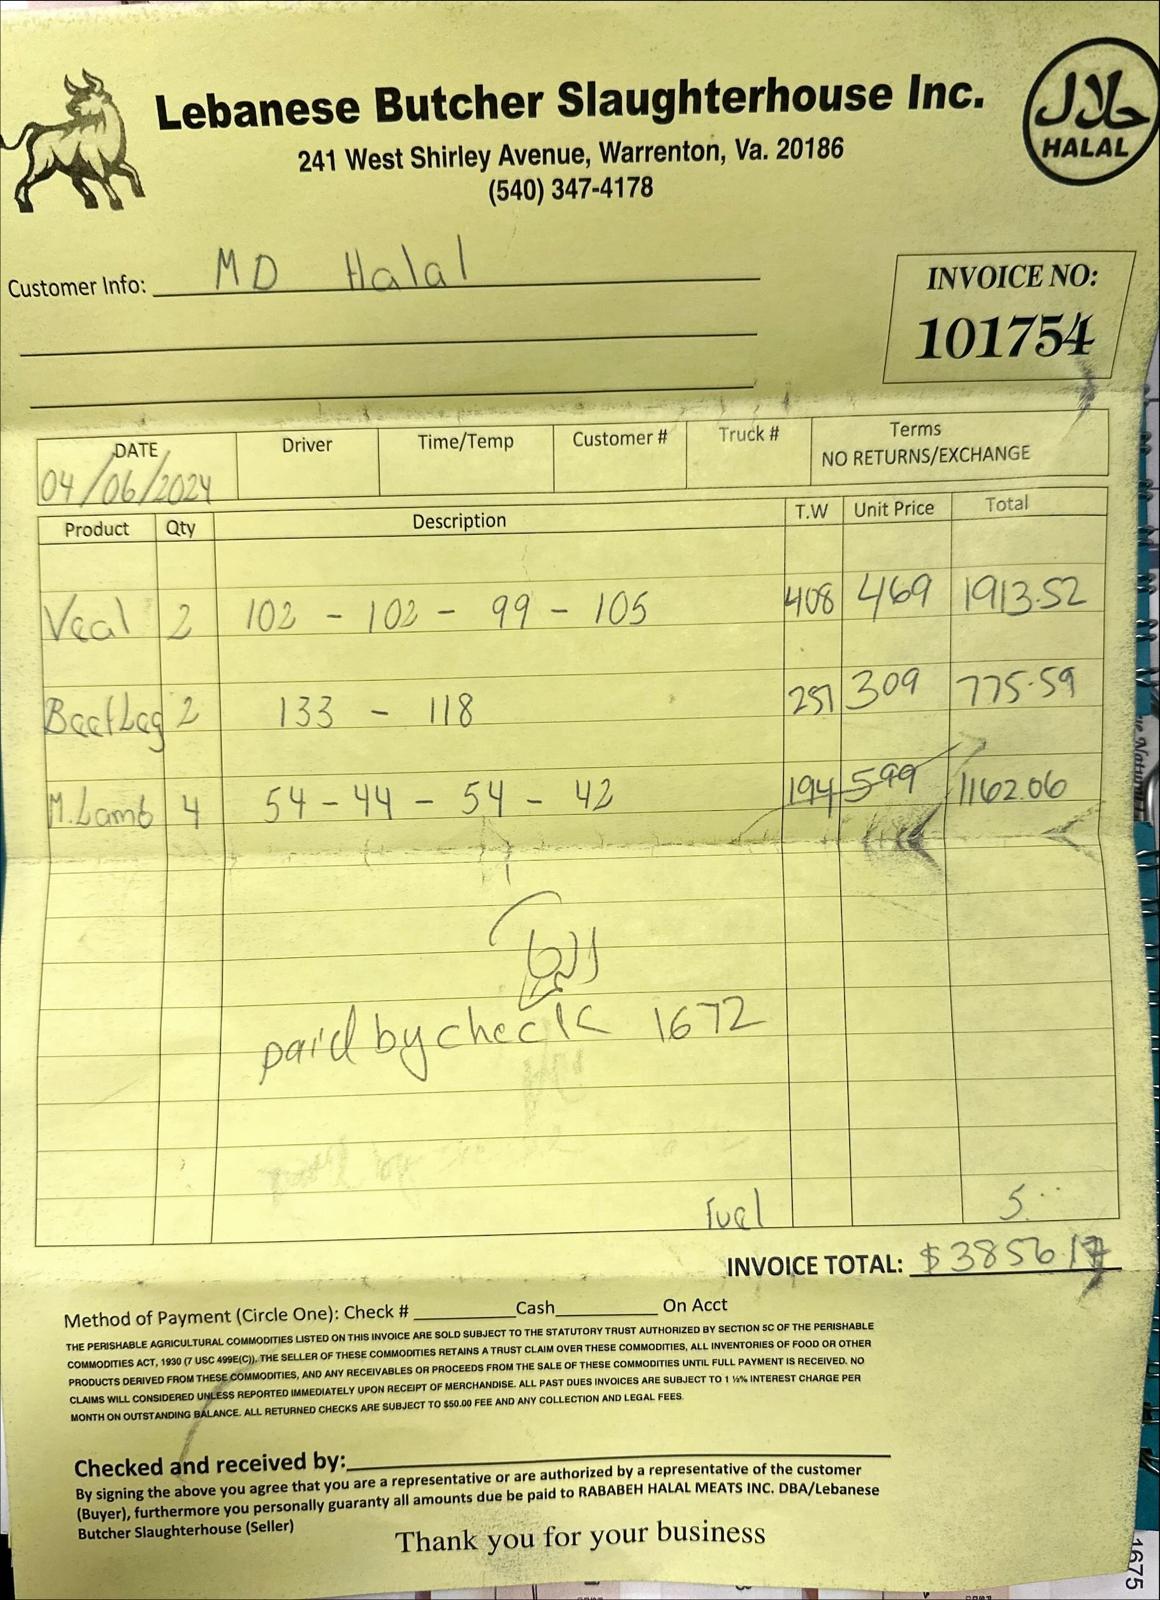 Lebanese Butcher Slaughterhouse Inc.
حلال
HALAL
241 West Shirley Avenue, Warrenton, Va. 20186
(540) 347-4178
Customer Info: MD Halal
INVOICE NO:
101754
DATE Driver Time/Temp Customer # Truck # Terms
NO RETURNS/EXCHANGE
04/06/2024
Product Qty Description T.W Unit Price Total
Veal 2 102 - 102 - 99 - 105 408 469 1913.52
Beef Leg 2 133 - 118 251 309 775.59
M.Lamb 4 54 - 44 - 54 - 42 194 599 1162.06
paid by check 1672
Fuel 5
INVOICE TOTAL: $3856.17
Method of Payment (Circle One): Check # Cash On Acct
THE PERISHABLE AGRICULTURAL COMMODITIES LISTED ON THIS INVOICE ARE SOLD SUBJECT TO THE STATUTORY TRUST AUTHORIZED BY SECTION 5C OF THE PERISHABLE
COMMODITIES ACT, 1930 (7 USC 499E(C)). THE SELLER OF THESE COMMODITIES RETAINS A TRUST CLAIM OVER THESE COMMODITIES, ALL INVENTORIES OF FOOD OR OTHER
PRODUCTS DERIVED FROM THESE COMMODITIES, AND ANY RECEIVABLES OR PROCEEDS FROM THE SALE OF THESE COMMODITIES UNTIL FULL PAYMENT IS RECEIVED. NO
CLAIMS WILL CONSIDERED UNLESS REPORTED IMMEDIATELY UPON RECEIPT OF MERCHANDISE. ALL PAST DUES INVOICES ARE SUBJECT TO 1 ½% INTEREST CHARGE PER
MONTH ON OUTSTANDING BALANCE. ALL RETURNED CHECKS ARE SUBJECT TO $50.00 FEE AND ANY COLLECTION AND LEGAL FEES.
Checked and received by:
By signing the above you agree that you are a representative or are authorized by a representative of the customer
(Buyer), furthermore you personally guaranty all amounts due be paid to RABABEH HALAL MEATS INC. DBA/Lebanese
Butcher Slaughterhouse (Seller)
Thank you for your business
1675